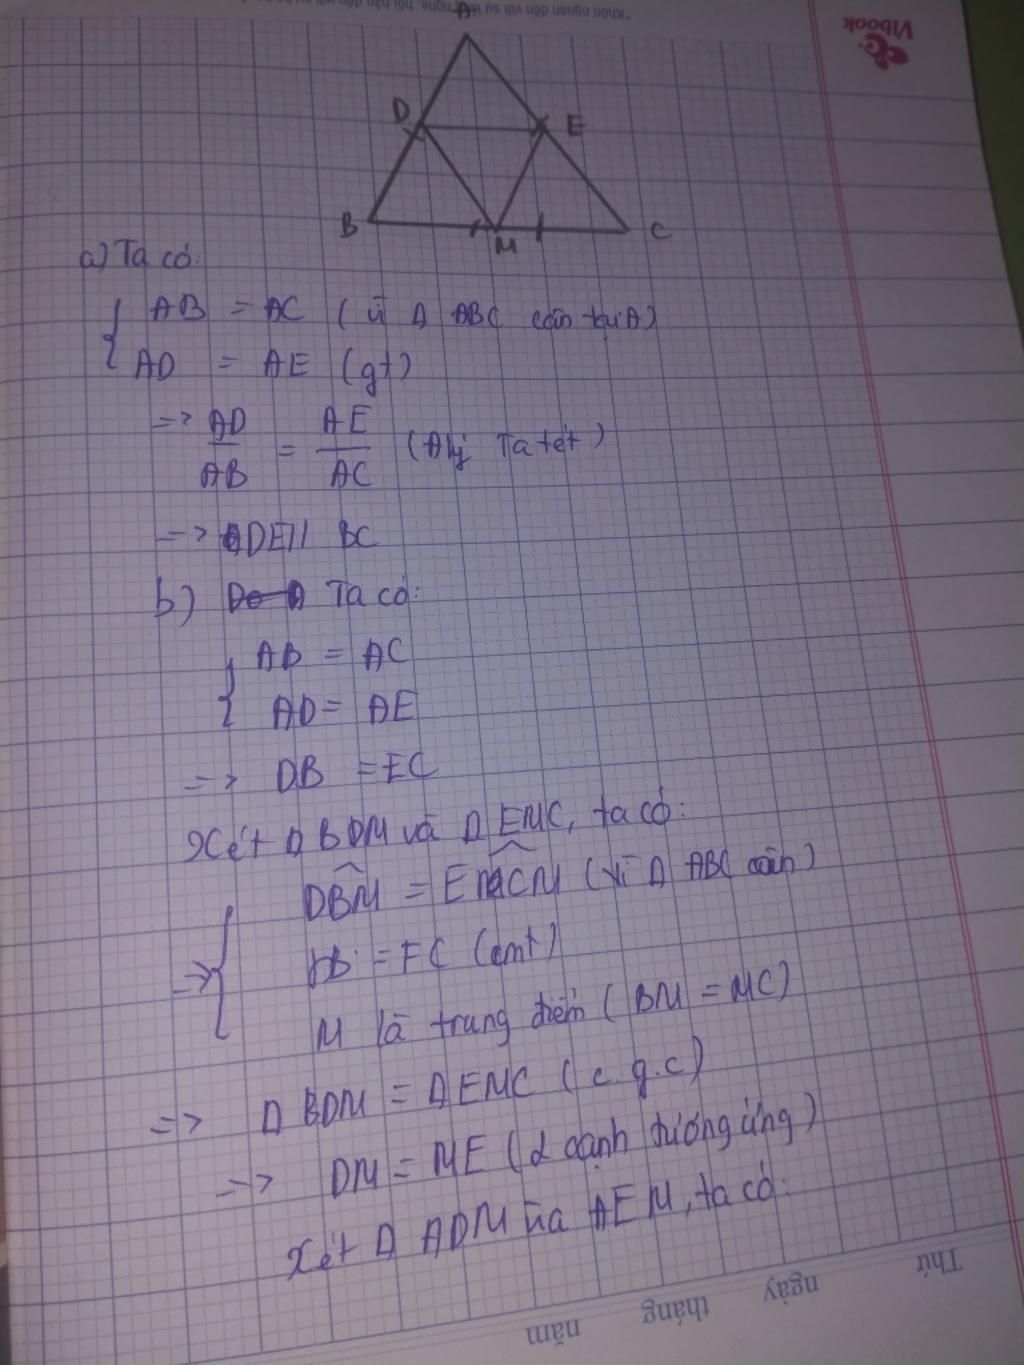 "Khôn ngoan đến với sự lắng nghe, hối hận đến với sự
Vibook
A
D
E
B
M
C
a) Ta có:
AB = AC (vì Δ ABC cân tại A)
AD = AE (gt)
=> AD/AB = AE/AC (Đlý Ta tét)
=> DE // BC
b) Ta có:
AB = AC
AD = AE
=> DB = EC
Xét Δ BDM và Δ EMC, ta có:
DBM = ECM (vì Δ ABC cân)
=> DB = EC (cmt)
M là trung điểm (BM = MC)
=> Δ BDM = Δ EMC (c.g.c)
=> DM = ME (2 cạnh tương ứng)
Xét Δ ADM và AEM, ta có:
Thứ ngày tháng năm